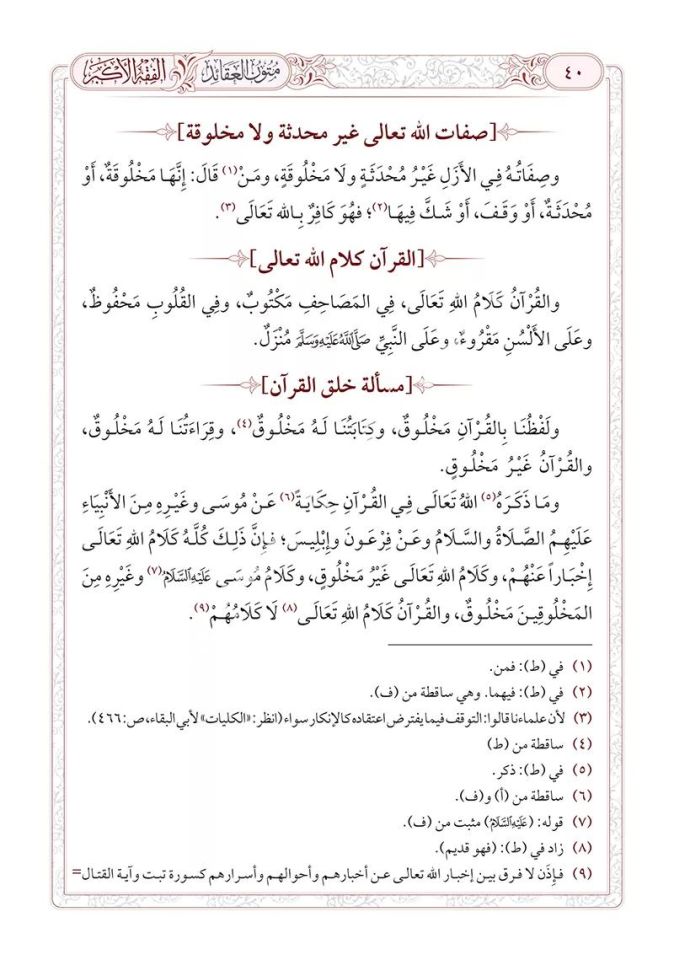 ٤٠
متون العقائد
الفقه الأكبر
[صفات الله تعالى غير محدثة ولا مخلوقة]
وصِفَاتُهُ فِي الأَزَلِ غَيْرُ مُحْدَثَةٍ ولَا مَخْلُوقَةٍ، ومَنْ(١) قَالَ: إِنَّهَا مَخْلُوقَةٌ، أَوْ
مُحْدَثَةٌ، أَوْ وَقَفَ، أَوْ شَكَّ فِيهَا(٢)؛ فهُوَ كَافِرٌ بِالله تَعَالَى(٣).
[القرآن كلام الله تعالى]
والقُرْآنُ كَلَامُ اللهِ تَعَالَى، فِي المَصَاحِفِ مَكْتُوبٌ، وفِي القُلُوبِ مَحْفُوظٌ،
وعَلَى الأَلْسُنِ مَقْرُوءٌ، وعَلَى النَّبِيِّ ﷺ مُنْزَلٌ.
[مسألة خلق القرآن]
ولَفْظُنَا بِالقُرْآنِ مَخْلُوقٌ، وكِتَابَتُنَا لَهُ مَخْلُوقٌ(٤)، وقِرَاءَتُنَا لَهُ مَخْلُوقٌ،
والقُرْآنُ غَيْرُ مَخْلُوقٍ.
ومَا ذَكَرَهُ(٥) اللهُ تَعَالَى فِي القُرْآنِ حِكَايَةً(٦) عَنْ مُوسَى وغَيْرِهِ مِنَ الأَنْبِيَاءِ
عَلَيْهِمُ الصَّلَاةُ والسَّلَامُ وعَنْ فِرْعَونَ وإِبْلِيسَ؛ فإِنَّ ذَلِكَ كُلَّهُ كَلَامُ اللهِ تَعَالَى
إِخْبَاراً عَنْهُمْ، وكَلَامُ اللهِ تَعَالَى غَيْرُ مَخْلُوقٍ، وكَلَامُ مُوسَى عَلَيْهِ السَّلَامُ(٧) وغَيْرِهِ مِنَ
المَخْلُوقِينَ مَخْلُوقٌ، والقُرْآنُ كَلَامُ اللهِ تَعَالَى(٨) لَا كَلَامُهُمْ(٩).
(١) في (ط): فمن.
(٢) في (ط): فيهما. وهي ساقطة من (ف).
(٣) لأن علماءنا قالوا: التوقف فيما يفترض اعتقاده كالإنكار سواء (انظر: «الكليات» لأبي البقاء، ص: ٤٦٦).
(٤) ساقطة من (ط)
(٥) في (ط): ذكر.
(٦) ساقطة من (أ) و(ف).
(٧) قوله: (عَلَيْهِ السَّلَامُ) مثبت من (ف).
(٨) زاد في (ط): (فهو قديم).
(٩) فإذن لا فرق بين إخبار الله تعالى عن أخبارهم وأحوالهم وأسرارهم كسورة تبت وآية القتال=